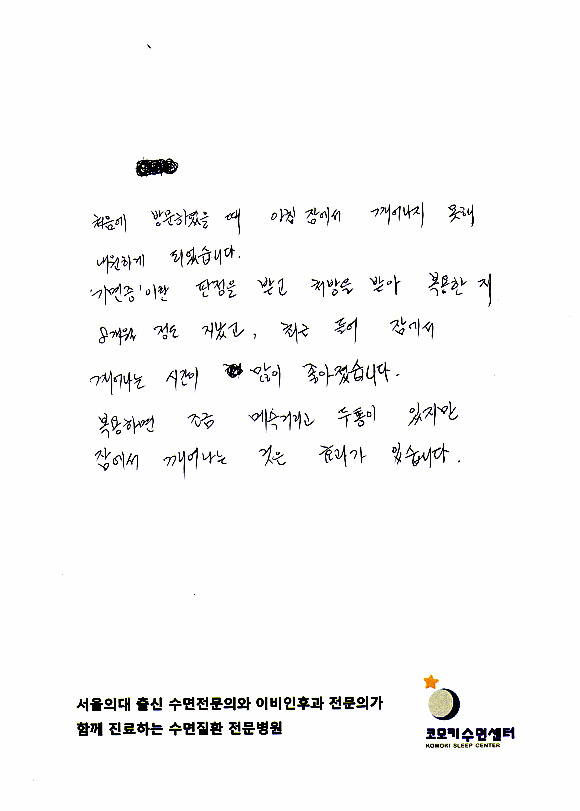 처음에 방문하였을 때 아침 잠에서 깨어나지 못해
내원하게 되었습니다.
'기면증'이란 판정을 받고 처방을 받아 복용한 지
8개월 정도 지났고, 최근 들어 잠에서
깨어나는 시간이 많이 좋아졌습니다.
복용하면 조금 메슥거리고 두통이 있지만
잠에서 깨어나는 것은 효과가 있습니다.
서울의대 출신 수면전문의와 이비인후과 전문의가
함께 진료하는 수면질환 전문병원
코모키수면센터
KOMOKI SLEEP CENTER